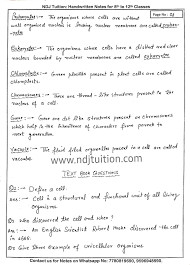 NDJ Tuition: Handwritten Notes for 6th to 12th Classes
Page No: 01
Prokaryotes: The organisms whose cells are without
well organised nucleus lacking nuclear membrane are called
Eukaryotes: The organisms whose cells have a distinct and clear
nucleus bounded by nuclear membrane are called eukaryotes.
Chloroplasts: Green plastids present in plant cells are called
chloroplasts.
Chromosomes: These are thread-like structure present in the
nucleus of a cell.
Gene: Genes are structure present on chromosomes
which help in the inheritance of characters from parent
to offspring.
Vacuole: The fluid filled organelles present in a cell are called
vacuole.
www.ndjtuition.com
TEXT BOOK QUESTIONS
Define a cell.
Cell is a structural and functional unit of all living
organisms.
Who discovered the cell and when?
An English Scientist Robert Hooke discovered the cell
in 1665.
Give three example of unicellular organisms
Contact us for Notes on Whatsapp No: